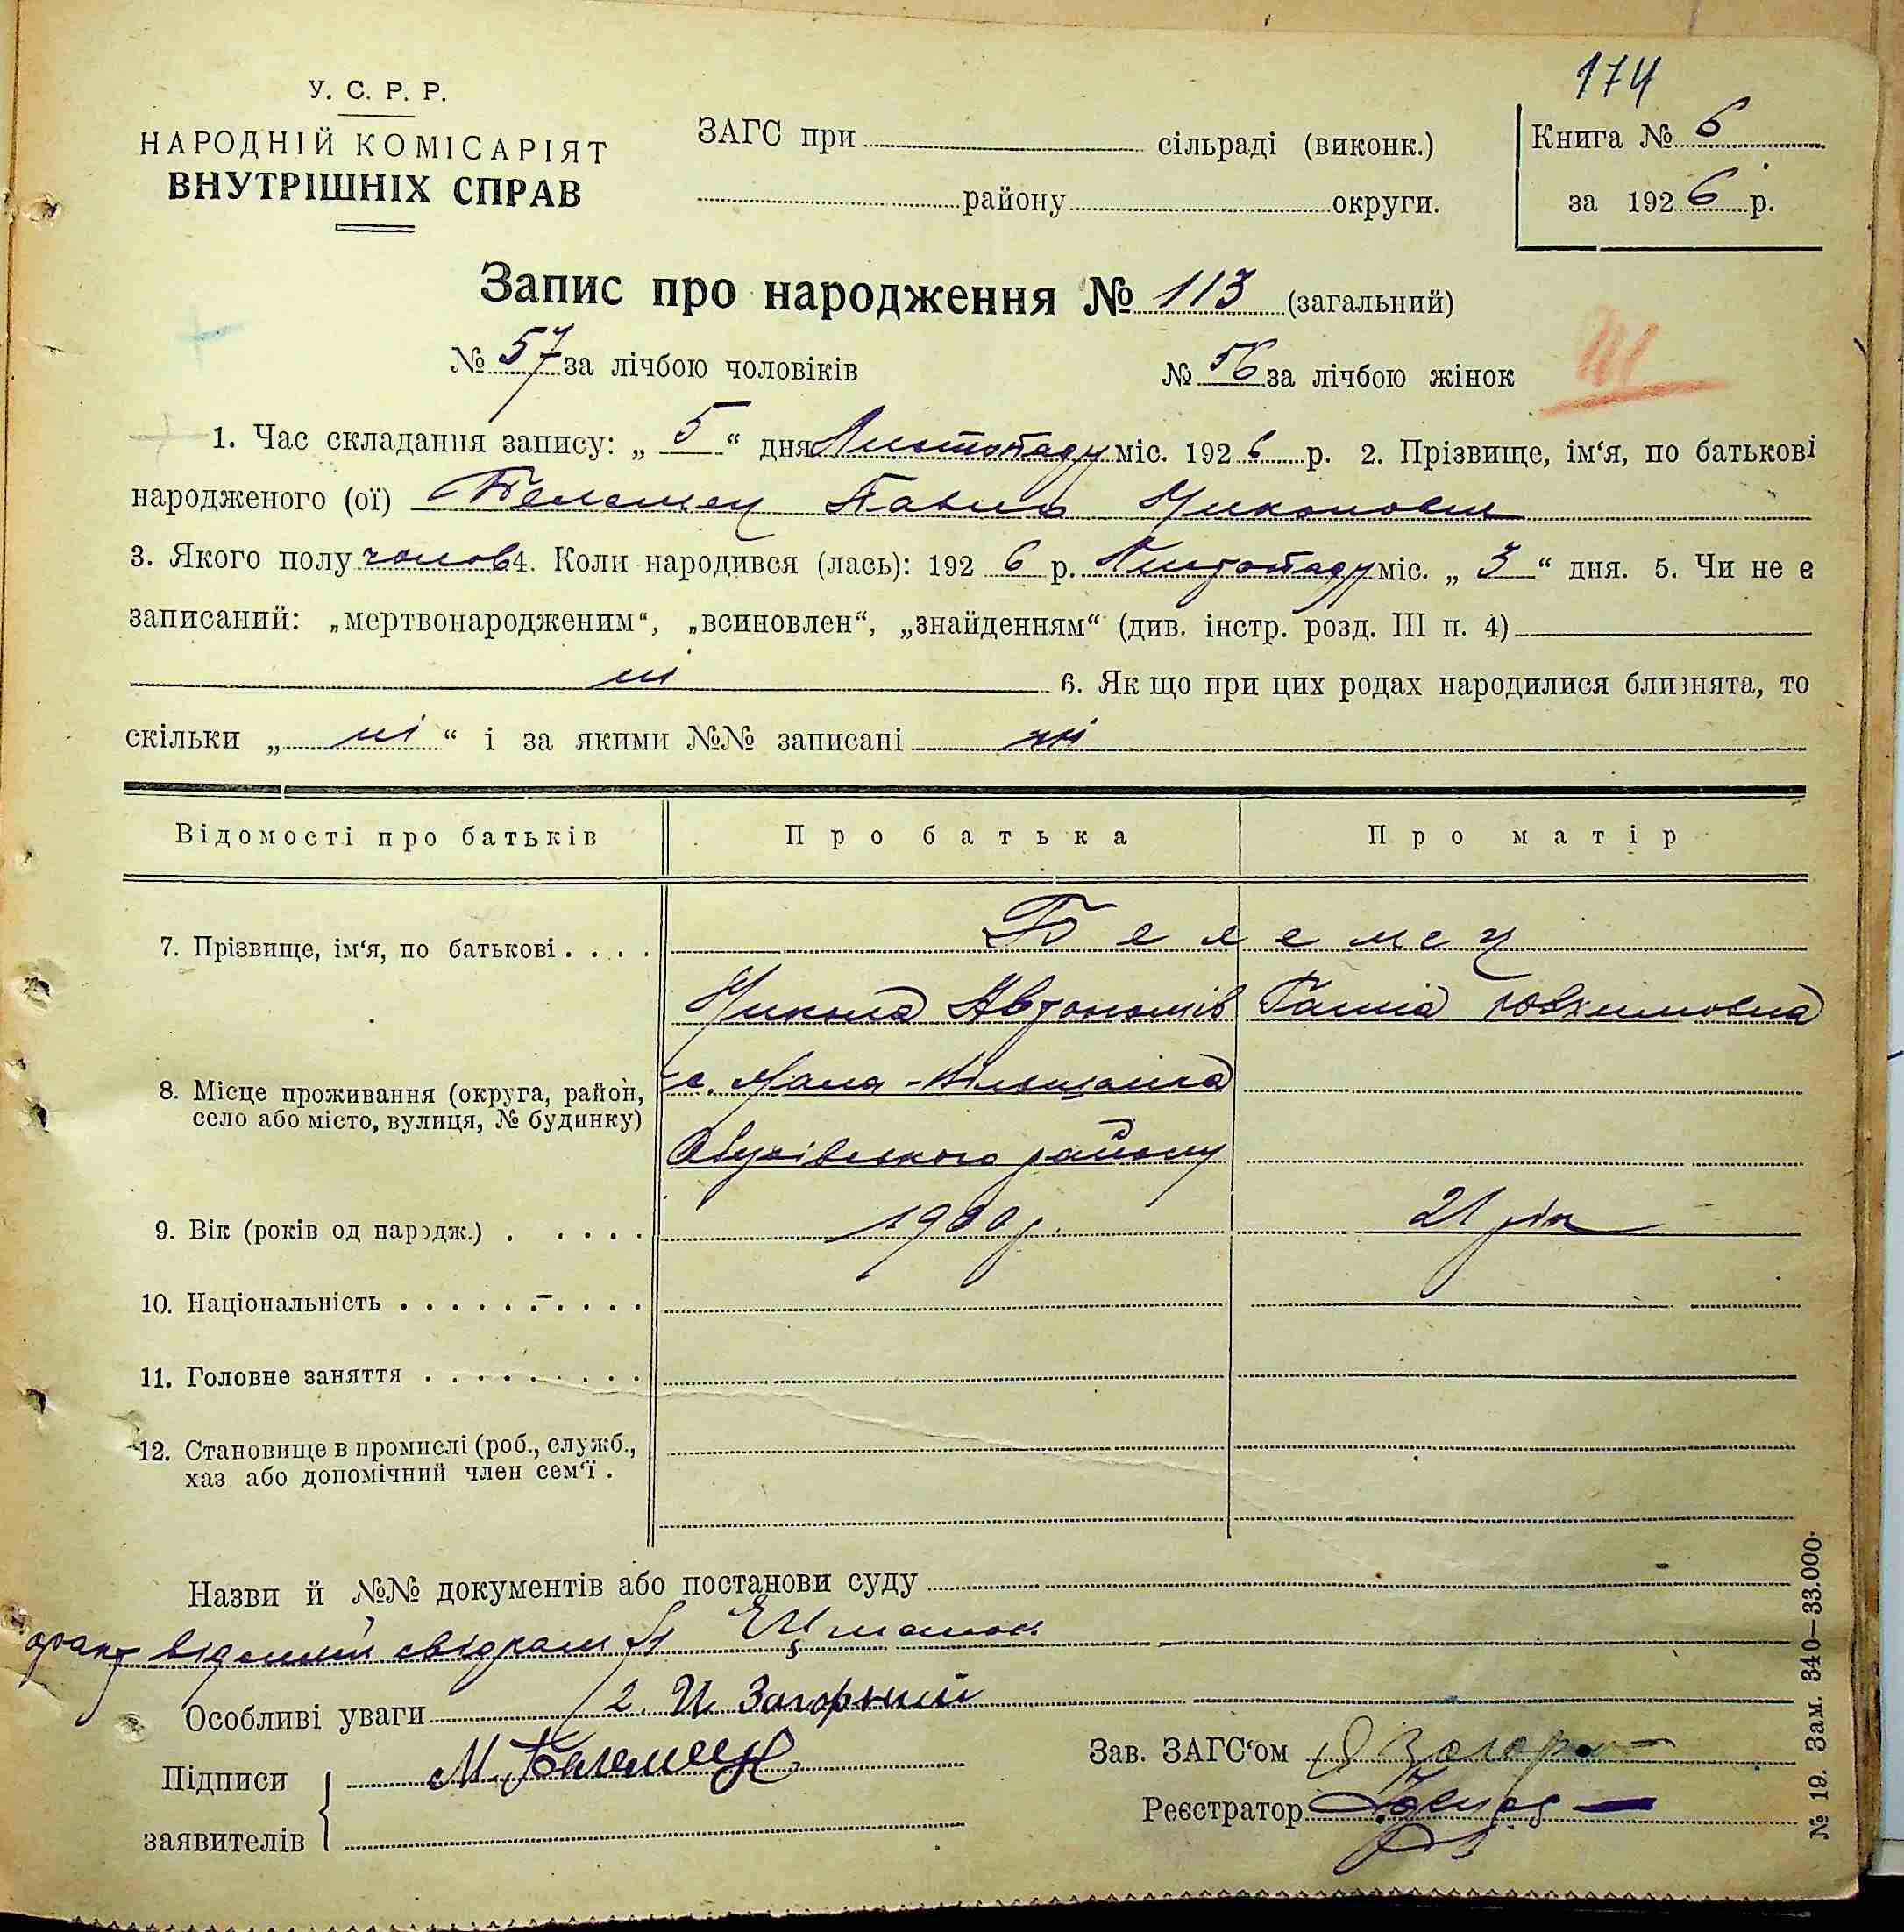 174
У. С. Р. Р.
НАРОДНІЙ КОМІСАРІЯТ
ВНУТРІШНІХ СПРАВ
ЗАГС при сільраді (виконк.)
району округи.
Книга № 6
за 1926 р.
Запис про народження № 113 (загальний)
№ 57 за лічбою чоловіків № 56 за лічбою жінок
1. Час складання запису: „ 5 “ дня Листопаду міс. 1926 р. 2. Прізвище, ім‘я, по батькові
народженого (ої) Белемец Павло Миколович
3. Якого полу чолов 4. Коли народився (лась): 192 6 р. Листопаду міс. „ 3 “ дня. 5. Чи не є
записаний: „мертвонародженим“, „всиновлен“, „знайденням“ (див. інстр. розд. III п. 4)
ні 6. Як що при цих родах народилися близнята, то
скільки „ ні “ і за якими №№ записані ні
Відомості про батьків Про батька Про матір
7. Прізвище, ім‘я, по батькові . . . . Белемец
Микола Автономів Ганна Юхимовна
8. Місце проживання (округа, район, с. Мала-Вільшанка
село або місто, вулиця, № будинку)
Обухівського району
9. Вік (років од народж.) . . . . . 1900 р. 21 рік
10. Національність
11. Головне заняття
12. Становище в промислі (роб., служб.,
хаз або допомічний член сем‘ї .
Назви й №№ документів або постанови суду
відомий свідкам
Особливі уваги 2. И Загорний
Підписи М. Белемец Зав. ЗАГС‘ом
заявителів Реєстратор
№ 19. Зам. 340—33.000.